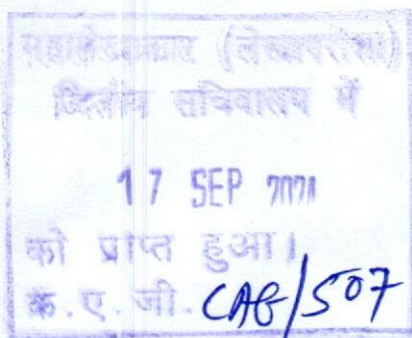 महालेखाकार (लेखापरीक्षा)
द्वितीय सचिवालय में
17 SEP
को प्राप्त हुआ।
क.ए.जी. CAG/507